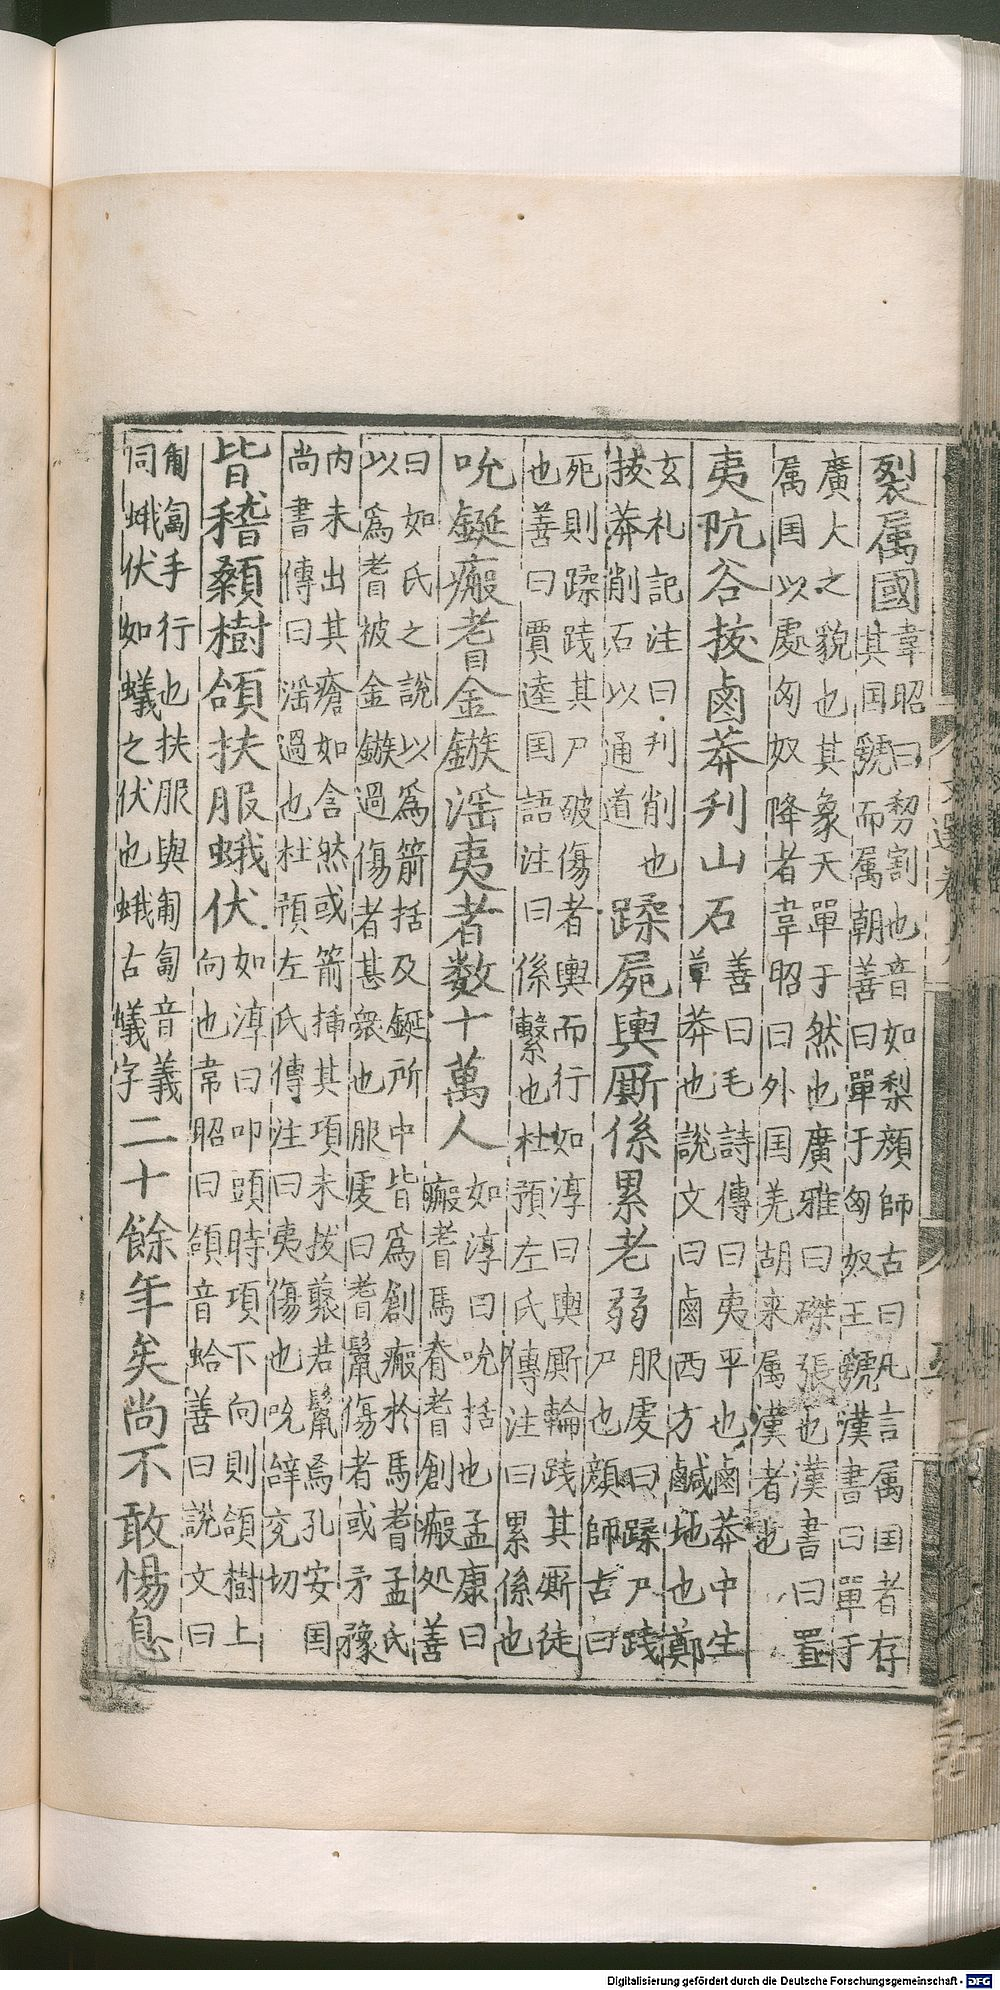 裂属國
韋昭曰剺割也音如梨顔師古曰凡言属囯者存
其囯號而属朝善曰單于匈奴王號漢書曰單于
廣大之貌也其象天單于然也廣雅曰磔張也漢書曰置
属囯以處匈奴降者韋昭曰外囯羌胡来属漢者也
夷阬谷拔鹵莽刋山石
善曰毛詩傳曰夷平也鹵莽中生
草莽也說文曰鹵西方鹹地也鄭
玄礼記注曰刋削也
拔莽削石以通道
蹂屍輿厮係累老弱
服虔曰蹂尸践
尸也顔師古曰
死則蹂践其尸破傷者輿而行如淳曰輿厮輪践其厮徒
也善曰賈逵囯語注曰係繫也杜預左氏傳注曰累係也
吮鋋瘢耆金鏃滛夷者数十萬人
如淳曰吮括也孟康曰
瘢耆馬脊耆創瘢処善
曰如氏之說以爲箭括及鋋所中皆爲創瘢於馬耆孟氏
以爲耆被金鏃過傷者甚衆也服虔曰耆鬛傷者或矛豫
内未出其瘡如含然或箭揷其項未拔若鬛焉孔安囯
尚書傳曰滛過也杜預左氏傳注曰夷傷也吮辝兖切
皆稽顙樹頷扶服蛾伏
如淳曰叩頭時項下向則頷樹上
向也韋昭曰頷音蛤善曰說文曰
匍匐手行也扶服與匍匐音義
同蛾伏如蟻之伏也蛾古蟻字
二十餘年矣尚不敢惕息
文選卷
Digitalisierung gefördert durch die Deutsche Forschungsgemeinschaft - DFG